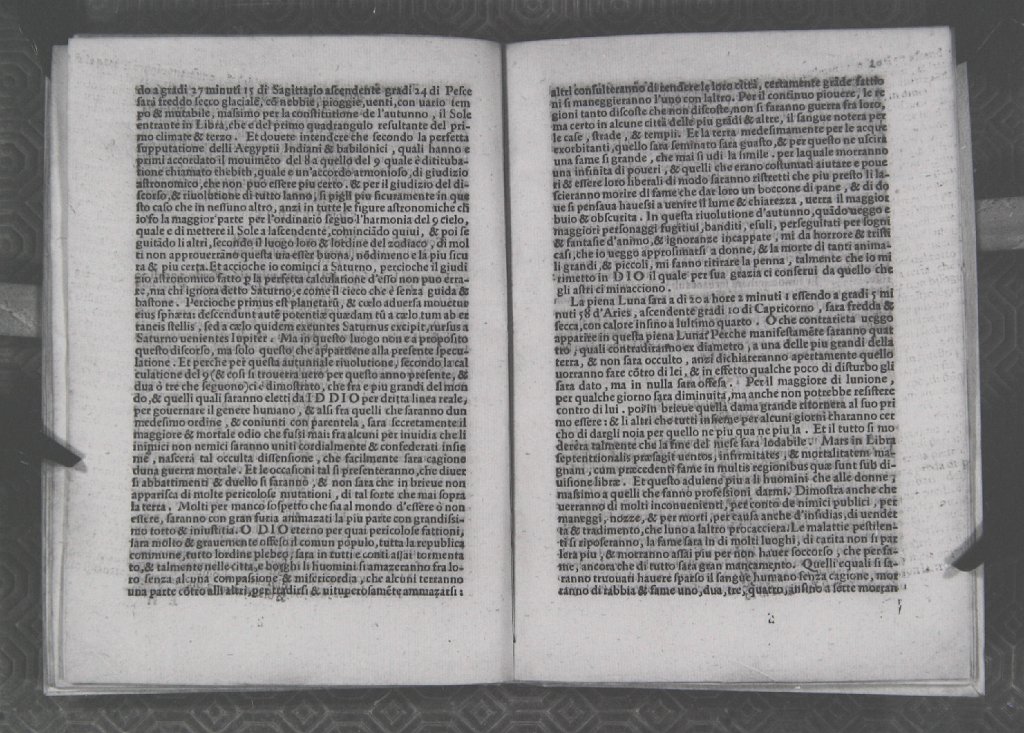 do a gradi 27 minuti 15 di Sagittario ascendente gradi 24 di Pesce
sara freddo secco glaciale, cō nebbie, pioggie, uenti, con uario tem
po & mutabile, massimo per la constitutione de l'autunno, il Sole
entrante in Libra, che e del primo quadrangulo resultante del pri-
mo climate & terzo. Et douete intendere che secondo la perfetta
supputatione delli Aegyptii Indiani & babilonici, quali hanno e
primi accordato il mouimēto del 8 a quello del 9 quale è dititub-
tione chiamato thebith, quale e un'accordo armonioso, di giudizio
astronomico, che non puo essere piu certo. & per il giudizio del di-
scorso, & riuolutione di tutto lanno, si pigli piu sicuramente in que
sto caso che in nessuno altro, anzi in tutte le figure astronomiche ch̄
io fo la maggior parte per l'ordinario seguo l'harmonia del 9 cielo,
quale e di mettere il Sole a lascendente, cominciādo quiui, & poi se
guitādo li altri, secondo il luogo loro & lordine del zodiaco, di mol
ti non approuerrāno questa uia esser buona, nōdimeno e la piu sicu
ra & piu certa. Et accioche io cominci a Saturno, percioche il giudi
zio astronomico fatto p la perfetta calculatione d'esso non puo erra-
re, ma chi ignora detto Saturno, e come il cieco che è senza guida &
bastone. Percioche primus est planetarū, & cœlo aduersa mouetur
eius sphæra: descendunt autē potentiæ quædam tū a cœlo tum ab er
rancis stellis, sed a cœlo quidem exeuntes Saturnus excipit, rursus a
Saturno uenientes Iupiter. Ma in questo luogo non e a proposito
questo discorso, ma solo questo che appartiene alla presente specu-
latione. Et perche per questa autunnale riuolutione, secondo la cal
culatione del 9 (& cosi si trouerra uero per questo anno presente, &
dua ò tre che seguono) ci è dimostrato, che fra e piu grandi del mon
do, & quelli quali saranno eletti da IDDIO per dritta linea reale,
per gouernare il genere humano, & alsi fra quelli che saranno dun
medesimo ordine, & coniunti con parentela, sara secretamente il
maggiore & mortale odio che fussi mai fra alcuni per inuidia che li
inimici non nemici saranno uniti cordialmente & confederati insie
me, nascerà tal occulta dissensione, che facilmente sara cagione
duna guerra mortale. Et le occasioni tal si presenteranno, che diuer
si abbattimenti & duello si faranno, & non sara che in brieue non
apparisca di molte pericolose mutationi, di tal sorte che mai sopra
la terra. Molti per manco sospetto che sia al mondo d'essere ò non
essere, saranno con gran furia ammazati la piu parte con grandissi-
mo torto & iniustitia. O DIO eterno per quai pericolose fattioni,
sara mollo & grauemente offeso il comun populo, tutta la republica
commune, tutto lordine plebeo, sara in tutti e conti assai tormenta
to, & talmente nelle città, e borghi li huomini si amazeranno fra lo-
ro senza alcuna compassione & misericordia, che alcuni terranno
una parte cōtro alli altri, per tradirsi & uituperosamēte ammazarsi:
altri consulteranno di rendere le loro città, certamente grāde fattio
ni si maneggieranno l'uno con laltro. Per il continuo piouere, le re
gioni tanto discoste che non discoste, non si faranno guerra fra loro,
ma certo in alcune città delle piu grādi & altre, il sangue notera per
le case, strade, & tempii. Et la terra medesimamente per le acque
exorbitanti, quello sara seminato sara guasto, & per questo ne uscira
una fame si grande, che mai si udi la simile. per laquale morranno
una infinita di poueri, & quelli che erano costumati aiutare e poue
ri & essere loro liberali di modo saranno ristretti che piu presto li la-
scieranno morire di fame che dar loro un boccone di pane, & di do
ue si pensaua hauessi a uenire il lume & chiarezza, uerra il maggior
buio & obscurita. In questa riuolutione d'autunno, quādo ueggo e
maggiori personaggi fugitiui, banditi, esuli, perseguitati per sogni
& fantasie d'animo, & ignoranze incappate, mi da horrore & tristi
casi, che io ueggo approsimarsi a donne, & la morte di tanti anima-
li grandi, & piccoli, mi fanno ritirare la penna, talmente che io mi
rimetto in DIO il quale per sua grazia ci conserui da quello che
gli astri ci minacciono.
La piena Luna sara a di 20 a hore 2 minuti 1 essendo a gradi 5 mi
nuti 58 d'Aries, ascendente gradi 10 di Capricorno, sara fredda &
secca, con calore insino a lultimo quarto. O che contrarieta ueggo
apparire in questa piena Luna? Perche manifestamēte saranno quat
tro, quali contradiranno ex diametro, a una delle piu grandi della
terra, & non sara occulto, anzi dichiareranno apertamente quello
uorranno fare cōtro di lei, & in effetto qualche poco di disturbo gli
sara dato, ma in nulla sara offesa. Per il maggiore di lunione,
per qualche giorno sara diminuita, ma anche non potrebbe resistere
contro di lui, poi in brieue quella dama grande ritornera al suo pri
mo essere: & li altri che tutti insieme per alcuni giorni charanno cer
cho di dargli noia per quello ne piu qua ne piu la. Et il tutto si mo
derera talmente che la fine del mese sara lodabile. Mars in Libra
septentrionalis præsagit uentos, infirmitates, & mortalitatem ma-
gnam, cum præcedenti fame in multis regionibus quæ sunt sub di-
uisione libræ. Et questo aduiene piu a li huomini che alle donne,
massimo a quelli che fanno professioni darmi. Dimostra anche che
uerranno di molti inconuenienti, per conto de nimici publici, per
maneggi, nozze, & per morti, per causa anche d'insidias, di uendet
ta & tradimento, che luno a laltro procacciera. Le malattie pestilen-
ti si riposeranno, la fame sara in di molti luoghi, di carita non si par
lera piu, & morranno assai piu per non hauer soccorso, che per fa-
me, ancora che di tutto sara gran mancamento. Quelli equali si sa-
ranno truouati hauere sparso il sangue humano senza cagione, mor
ranno di rabbia & fame uno, dua, tre, quatro, insino a sette morran